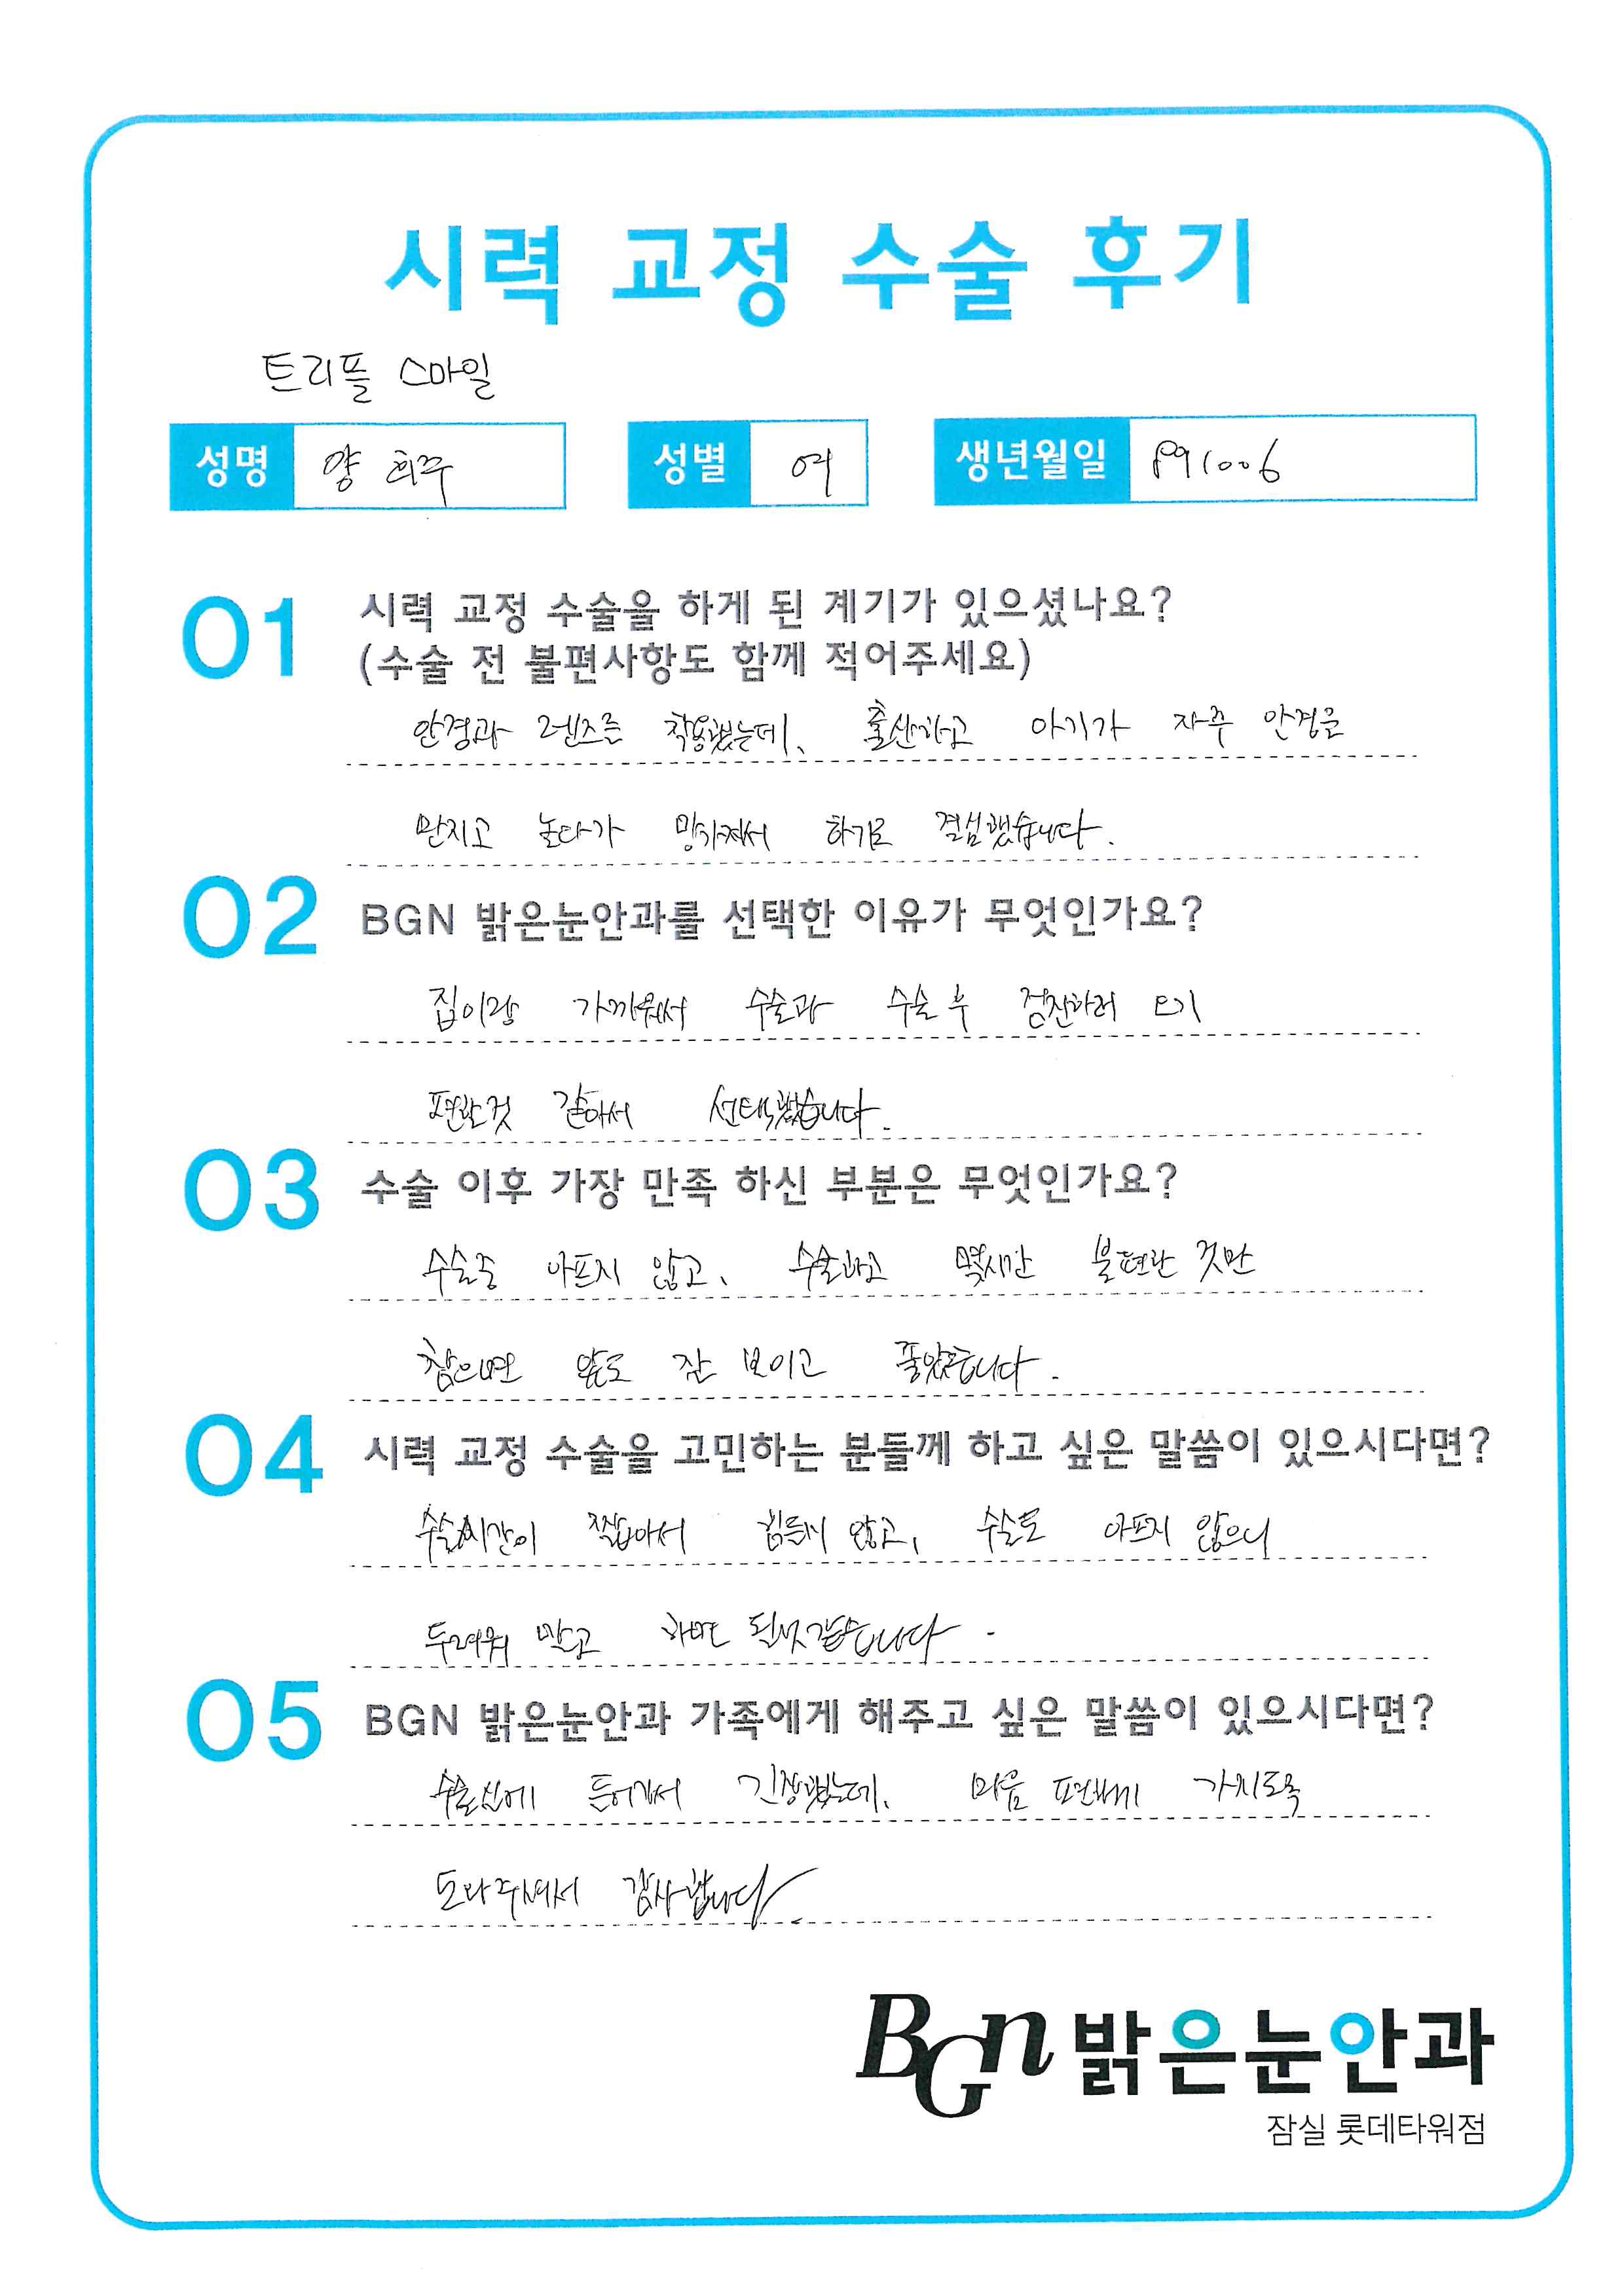 시력 교정 수술 후기
트리플 스마일
성명 양희주 성별 여 생년월일 891006
01 시력 교정 수술을 하게 된 계기가 있으셨나요?
(수술 전 불편사항도 함께 적어주세요)
안경과 렌즈를 착용했는데, 출산하고 아기가 자주 안경을
만지고 놀다가 망가져서 하기로 결심했습니다.
02 BGN 밝은눈안과를 선택한 이유가 무엇인가요?
집이랑 가까워서 수술과 수술 후 검진하러 오기
편한것 같아서 선택했습니다.
03 수술 이후 가장 만족 하신 부분은 무엇인가요?
수술중 아프지 않고, 수술하고 몇시간 불편한 것만
참으면 앞도 잘 보이고 좋았습니다.
04 시력 교정 수술을 고민하는 분들께 하고 싶은 말씀이 있으시다면?
수술시간이 짧아서 힘들지 않고, 수술도 아프지 않으니
두려워 말고 하면 될것같습니다.
05 BGN 밝은눈안과 가족에게 해주고 싶은 말씀이 있으시다면?
수술실에 들어가서 긴장했는데, 마음 편하게 가지도록
도와주셔서 감사합니다.
BGN 밝은눈안과
잠실 롯데타워점